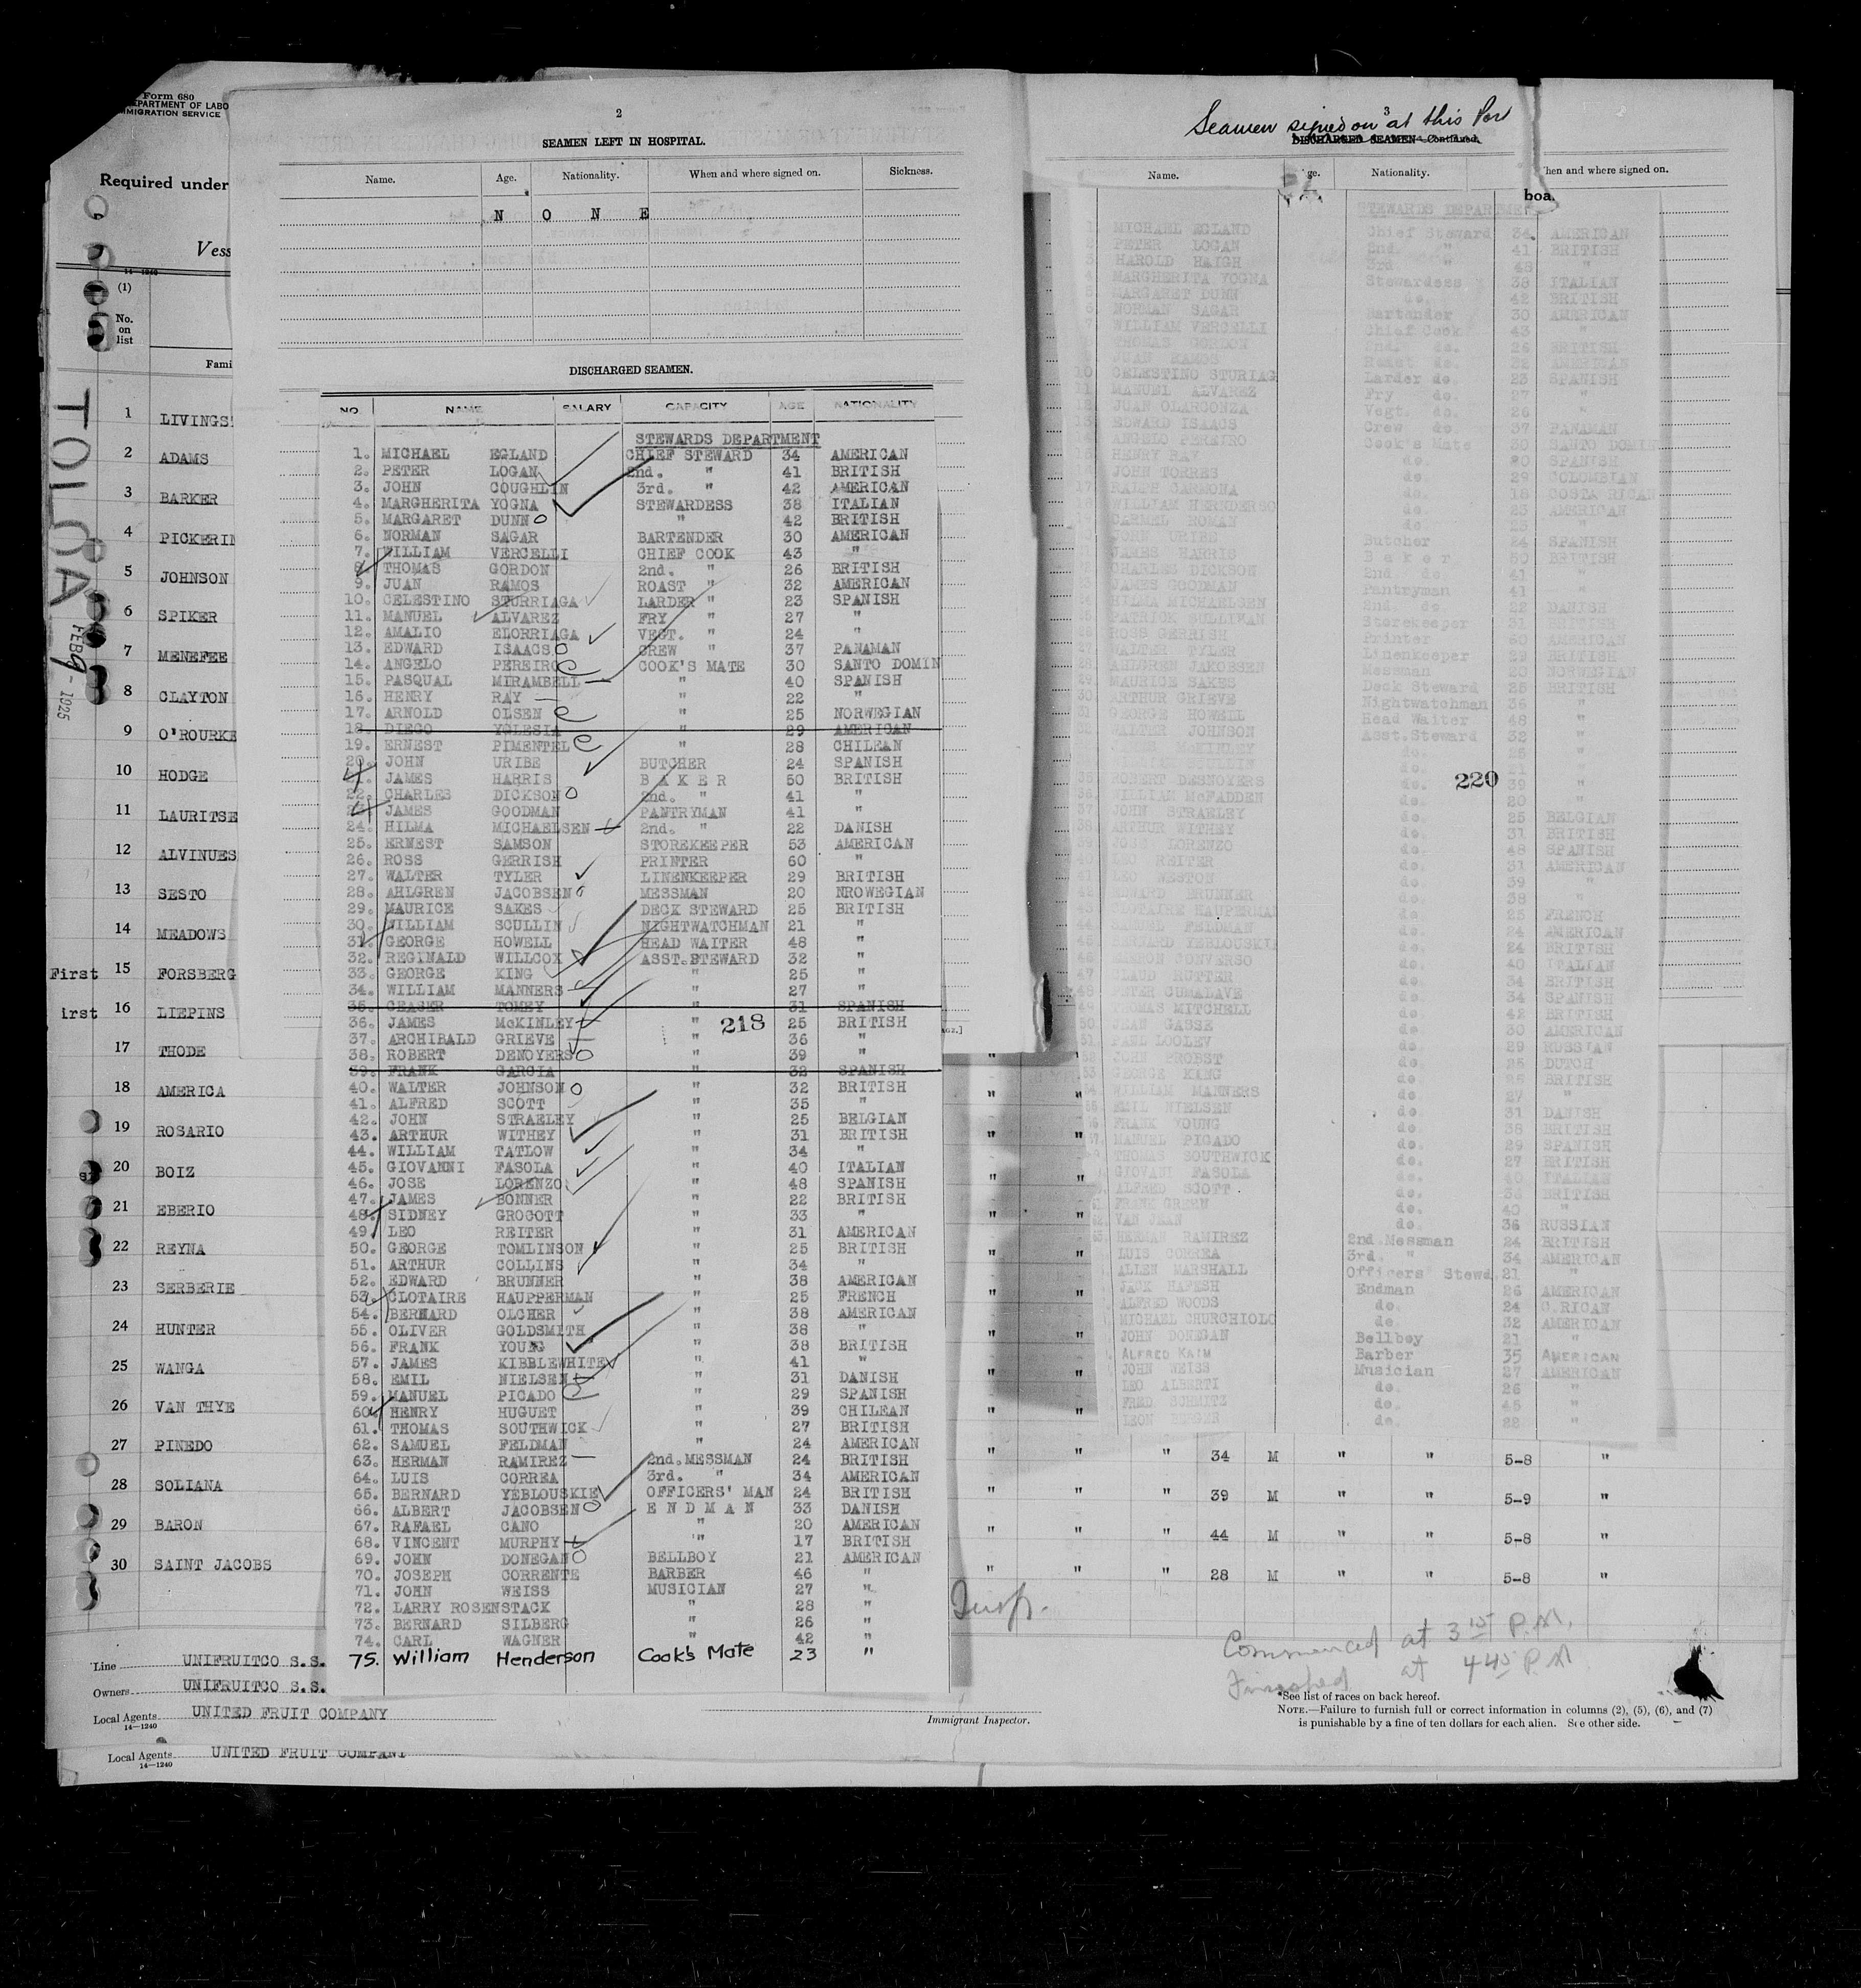 Form 680
DEPARTMENT OF LABO
IMMIGRATION SERVICE
Required under
Vess
14—1240
(1)
No.
on
list
Fami
TOLOA
FEB 9 - 1925
1 LIVINGS
2 ADAMS
3 BARKER
4 PICKERIN
5 JOHNSON
6 SPIKER
7 MENEFEE
8 CLAYTON
9 O'ROURKE
10 HODGE
11 LAURITSE
12 ALVINUES
13 SESTO
14 MEADOWS
First 15 FORSBERG
irst 16 LIEPINS
17 THODE
18 AMERICA
19 ROSARIO
20 BOIZ
21 EBERIO
22 REYNA
23 SERBERIE
24 HUNTER
25 WANGA
26 VAN THYE
27 PINEDO
28 SOLIANA
29 BARON
30 SAINT JACOBS
Line UNIFRUITCO S.S.
Owners UNIFRUITCO S.S.
Local Agents UNITED FRUIT COMPANY
14—1240
Local Agents UNITED FRUIT COMPANY
14—1240
2
SEAMEN LEFT IN HOSPITAL.
Name. Age. Nationality. When and where signed on. Sickness.
N O N E
DISCHARGED SEAMEN.
NO. NAME SALARY CAPACITY AGE NATIONALITY
STEWARDS DEPARTMENT
1. MICHAEL EGLAND CHIEF STEWARD 34 AMERICAN
2. PETER LOGAN 2nd. " 41 BRITISH
3. JOHN COUGHLIN 3rd. " 42 AMERICAN
4. MARGHERITA YOGNA STEWARDESS 38 ITALIAN
5. MARGARET DUNN " 42 BRITISH
6. NORMAN SAGAR BARTENDER 30 AMERICAN
7. WILLIAM VERCELLI CHIEF COOK 43 "
8. THOMAS GORDON 2nd. " 26 BRITISH
9. JUAN RAMOS ROAST " 32 AMERICAN
10. CELESTINO STURRIAGA LARDER " 23 SPANISH
11. MANUEL ALVAREZ FRY " 27 "
12. AMALIO ELORRIAGA VEGT. " 24 "
13. EDWARD ISAACS CREW " 37 PANAMAN
14. ANGELO PEREIRO COOK'S MATE 30 SANTO DOMIN
15. PASQUAL MIRAMBELL " 40 SPANISH
16. HENRY RAY " 22 "
17. ARNOLD OLSEN " 25 NORWEGIAN
18. DIEGO YGLESIA " 29 AMERICAN
19. ERNEST PIMENTEL " 28 CHILEAN
20. JOHN URIBE BUTCHER 24 SPANISH
21. JAMES HARRIS B A K E R 50 BRITISH
22. CHARLES DICKSON 2nd. " 41 "
23. JAMES GOODMAN PANTRYMAN 41 "
24. HILMA MICHAELSEN 2nd. " 22 DANISH
25. ERNEST SAMSON STOREKEEPER 53 AMERICAN
26. ROSS GERRISH PRINTER 60 "
27. WALTER TYLER LINENKEEPER 29 BRITISH
28. AHLGREN JACOBSEN MESSMAN 20 NROWEGIAN
29. MAURICE SAKES DECK STEWARD 25 BRITISH
30. WILLIAM SCULLIN NIGHTWATCHMAN 21 "
31. GEORGE HOWELL HEAD WAITER 48 "
32. REGINALD WILLCOX ASST.STEWARD 32 "
33. GEORGE KING " 25 "
34. WILLIAM MANNERS " 27 "
35. CEASER TOMEY " 31 SPANISH
36. JAMES McKINLEY " 25 BRITISH
218
37. ARCHIBALD GRIEVE " 36 "
38. ROBERT DENOYERS " 39 "
39. FRANK GARCIA " 32 SPANISH
40. WALTER JOHNSON " 32 BRITISH
41. ALFRED SCOTT " 35 "
42. JOHN STRAELEY " 25 BELGIAN
43. ARTHUR WITHEY " 31 BRITISH
44. WILLIAM TATLOW " 34 "
45. GIOVANNI FASOLA " 40 ITALIAN
46. JOSE LORENZO " 48 SPANISH
47. JAMES BONNER " 22 BRITISH
48. SIDNEY GROCOTT " 33 "
49. LEO REITER " 31 AMERICAN
50. GEORGE TOMLINSON " 25 BRITISH
51. ARTHUR COLLINS " 34 "
52. EDWARD BRUNNER " 38 AMERICAN
53. CLOTAIRE HAUPPERMAN " 25 FRENCH
54. BERNARD OLCHER " 38 AMERICAN
55. OLIVER GOLDSMITH " 38 "
56. FRANK YOUNG " 38 BRITISH
57. JAMES KIBBLEWHITE " 41 "
58. EMIL NIELSEN " 31 DANISH
59. MANUEL PICADO " 29 SPANISH
60. HENRY HUGUET " 39 CHILEAN
61. THOMAS SOUTHWICK " 27 BRITISH
62. SAMUEL FELDMAN " 24 AMERICAN
63. HERMAN RAMIREZ 2nd.MESSMAN 24 BRITISH
64. LUIS CORREA 3rd. " 34 AMERICAN
65. BERNARD YEBLOUSKIE OFFICERS' MAN 24 BRITISH
66. ALBERT JACOBSEN E N D M A N 33 DANISH
67. RAFAEL CANO " 20 AMERICAN
68. VINCENT MURPHY " 17 BRITISH
69. JOHN DONEGAN BELLBOY 21 AMERICAN
70. JOSEPH CORRENTE BARBER 46 "
71. JOHN WEISS MUSICIAN 27 "
72. LARRY ROSENSTACK " 28 "
73. BERNARD SILBERG " 26 "
74. CARL WAGNER " 42 "
75. William Henderson Cook's Mate 23 "
3
Seamen signed on at this Por
DISCHARGED SEAMEN—Continued.
Name. ge. Nationality. hen and where signed on.
boa.
STEWARDS DEPARTMENT
MICHAEL EGLAND Chief Steward 34 AMERICAN
PETER LOGAN 2nd. " 41 BRITISH
HAROLD HAIGH 3rd " 43 "
MARGHERITA YOGNA Stewardess 38 ITALIAN
MARGARET DUNN do. 42 BRITISH
NORMAN SAGAR Bartender 30 AMERICAN
WILLIAM VERCELLI Chief Cook 43 "
THOMAS GORDON 2nd. do. 26 BRITISH
JUAN RAMOS Roast do. 32 AMERICAN
10 CELESTINO STURIAG Larder do. 23 SPANISH
11 MANUEL ALVAREZ Fry do. 27 "
JUAN OLARGONZA Vegt. do. 26 "
EDWARD ISAACS Crew do. 37 PANAMAN
ANGELO PEREIRO Cook's Mate 30 SANTO DOMIN
HENRY RAY do. 20 SPANISH
JOHN TORRES do. 29 COLOMBIAN
17 RALPH CARMONA do. 18 COSTA RICAN
WILLIAM HERNDERSO do. 23 AMERICAN
CARMEL ROMAN do. 25 "
JOHN URIBE Butcher 24 SPANISH
JAMES HARRIS B a k e r 50 BRITISH
CHARLES DICKSON 2nd. do. 41 "
JAMES GOODMAN Pantryman 41 "
HILMA MICHAELSEN 2nd. do. 22 DANISH
PATRICK SULLIVAN Storekeeper 31 BRITISH
ROSS GERRISH Printer 60 AMERICAN
WALTER TYLER Linenkeeper 29 BRITISH
28 AHLGREN JAKOBSEN Messman 20 NORWEGIAN
29 MAURICE SAKES Deck Steward 25 BRITISH
30 ARTHUR GRIEVE Nightwatchman 36 "
31 GEORGE HOWELL Head Waiter 48 "
WALTER JOHNSON Asst.Steward 32 "
do. 25 "
do. 21
220
35 ROBERT DESNOYERS do. 39 "
36 WILLIAM McFADDEN do. 20 "
37 JOHN STRAELEY do. 25 BELGIAN
38 ARTHUR WITHEY do. 31 BRITISH
39 JOSE LORENZO do. 48 SPANISH
REITER do. 31 AMERICAN
41 LEO WESTON do. 39 "
EDWARD BRUNNER do. 38 "
CLOTAIRE HAUPERMAN do. 25 FRENCH
SAMUEL FELDMAN do. 24 AMERICAN
45 BERNARD YEBLOUSKI do. 24 BRITISH
CONVERSO do. 40 ITALIAN
47 CLAUD RUTTER do. 34 BRITISH
48 do. 34 SPANISH
49 THOMAS MITCHELL do. 42 BRITISH
50 JEAN GASSE do. 30 AMERICAN
51 do. 29 RUSSIAN
PROBST do. 25 DUTCH
53 GEORGE KING do. 25 BRITISH
54 WILLIAM MANNERS do. 27 "
55 EMIL NIELSEN do. 31 DANISH
FRANK YOUNG do. 38 BRITISH
MANUEL PICADO do. 29 SPANISH
THOMAS SOUTHWICK do. 27 BRITISH
GIOVANI FASOLA do. 40 ITALIAN
ALFRED SCOTT do. BRITISH
GREEN do. 40 "
VAN JEAN do. 36 RUSSIAN
HERMAN RAMIREZ 2nd.Messman 24 BRITISH
LUIS CORREA 3rd. " 34 AMERICAN
ALLEN MARSHALL Officers Stewd. 21 "
JACK HAFESH Endman 26 AMERICAN
ALFRED WOODS do. 24 C.RICAN
MICHAEL CHURCHIOLO do. 32 AMERICAN
JOHN DONEGAN Bellboy 21 "
ALFRED KAIM Barber 35 AMERICAN
JOHN WEISS Musician 27 AMERICAN
LEO ALBERTI do. 26 "
FRED SCHMITZ do. 45 "
LEON do. 22 "
" " " 34 M " " 5-8 "
" " " 39 M " " 5-9 "
" " " 44 M " " 5-8 "
" " " 28 M " " 5-8 "
Insp.
Commenced at 3 15 P.M.
Finished at 4 45 P.M
Immigrant Inspector.
*See list of races on back hereof.
NOTE.—Failure to furnish full or correct information in columns (2), (5), (6), and (7)
is punishable by a fine of ten dollars for each alien. See other side.